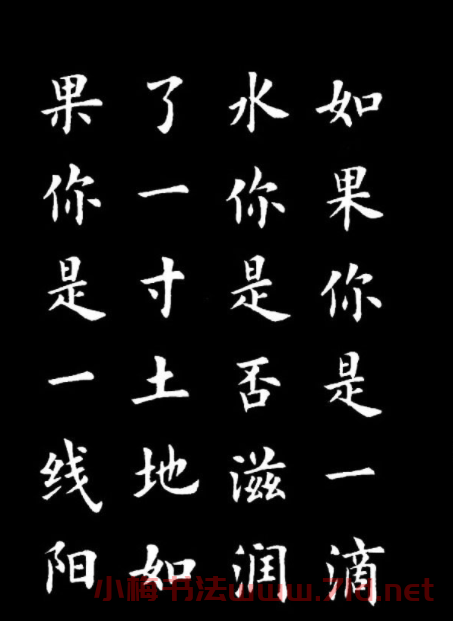 如果你是一滴
水你是否滋润
了一寸土地如
果你是一线阳
小梅书法www.71d.net